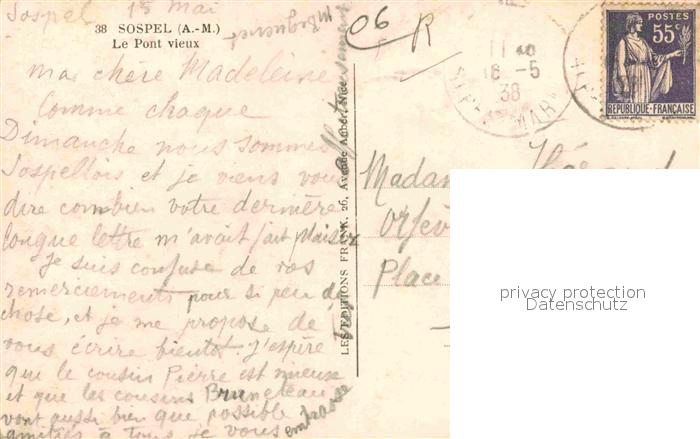 Sospel 15 Mai
38 SOSPEL (A.-M.)
Le Pont vieux
Ma chère Madeleine
Comme chaque
Dimanche nous sommes
Sospellois et je viens vous
dire combien votre dernière
longue lettre m'avait fait plaisir
Je suis confuse de vos
remerciements pour si peu de
chose, et je me propose de
vous écrire bientôt. J'espère
que le cousin Pierre est mieux
et que les cousins Bruneteau
vont aussi bien que possible
amitiés à tous je vous embrasse
affectueusement
LES EDITIONS FRANK. 26, Avenue Auber, Nice
06
R
16 -5
38
POSTES
55c
REPUBLIQUE-FRANÇAISE
Madam
Orfèv
Place
privacy protection
Datenschutz